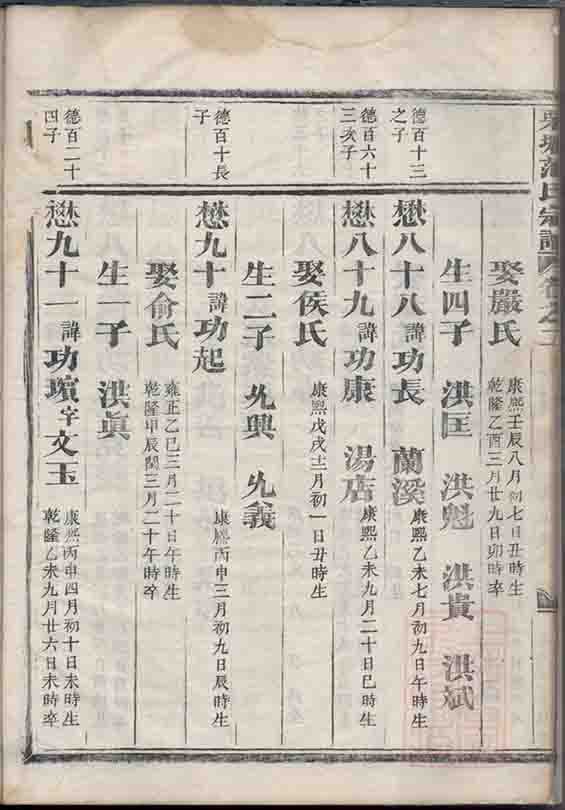 氏宗譜 卷之二
娶嚴氏 康熙壬辰八月初七日丑時生 乾隆乙酉三月廿九日卯時卒
生四子 洪匡 洪魁 洪貴 洪斌
德百十三之子
懋八十八 諱功長 蘭溪 康熙乙未七月初九日午時生
德百六十三次子
懋八十九 諱功康 湯店 康熙乙未九月二十日巳時生
娶侯氏 康熙戊戌十二月初一日丑時生
生二子 允興 允義
德百十長子
懋九十 諱功起 康熙丙申三月初九日辰時生
娶俞氏 雍正乙巳三月二十日午時生 乾隆甲辰閏三月二十午時卒
生一子 洪眞
德百二十四子
懋九十一 諱功璸字文玉 康熙丙申四月初十日未時生 乾隆乙未九月廿六日未時卒